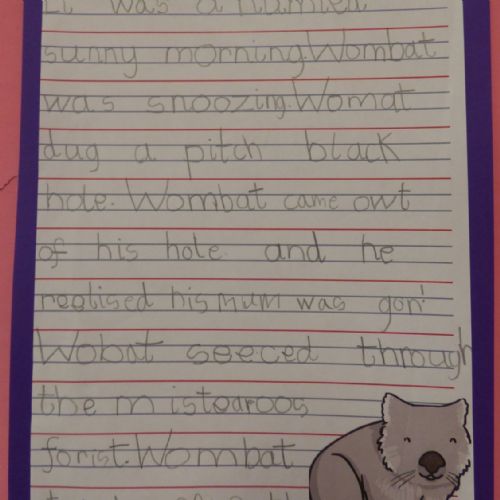 It was a
sunny morning.Wombat
was snoozing.Womat
dug a pitch black
hole. Wombat came owt
of his hole. and he
reelised his mum was gon!
Wobat seeced through
the mistearoos
forist.Wombat